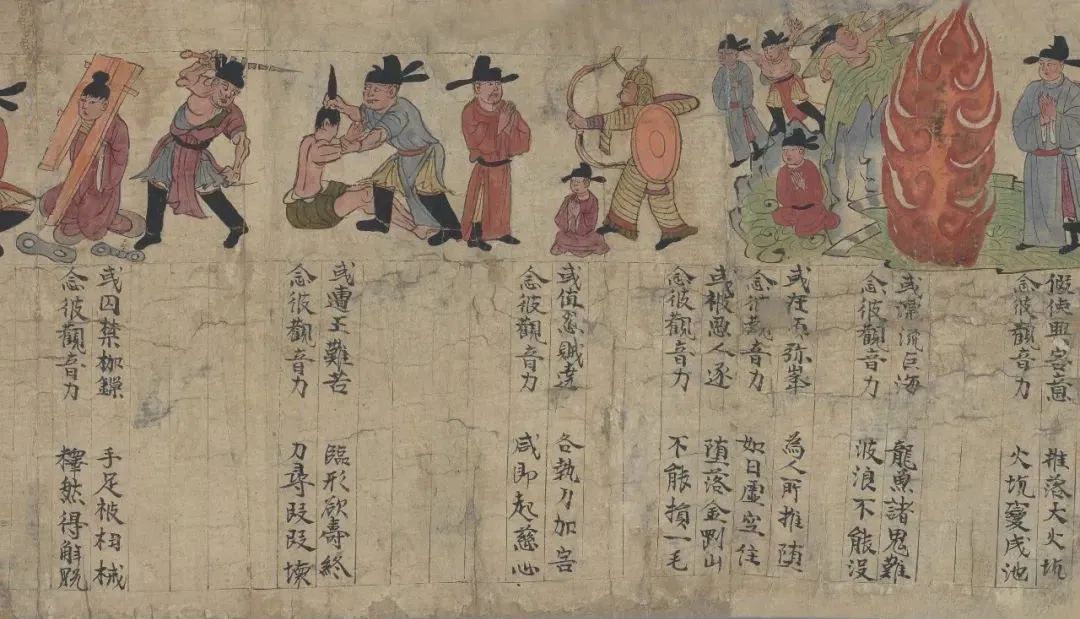 假使興害意 推落大火坑
念彼觀音力 火坑變成池
或漂流巨海 龍魚諸鬼難
念彼觀音力 波浪不能没
或在須弥峯 為人所推堕
念彼觀音力 如日虚空住
或被惡人逐 堕落金剛山
念彼觀音力 不能損一毛
或值怨賊遶 各執刀加害
念彼觀音力 咸即起慈心
或遭王難苦 臨形欲壽終
念彼觀音力 刀尋段段壞
或囚禁枷鏁 手足被杻械
念彼觀音力 釋然得解脱